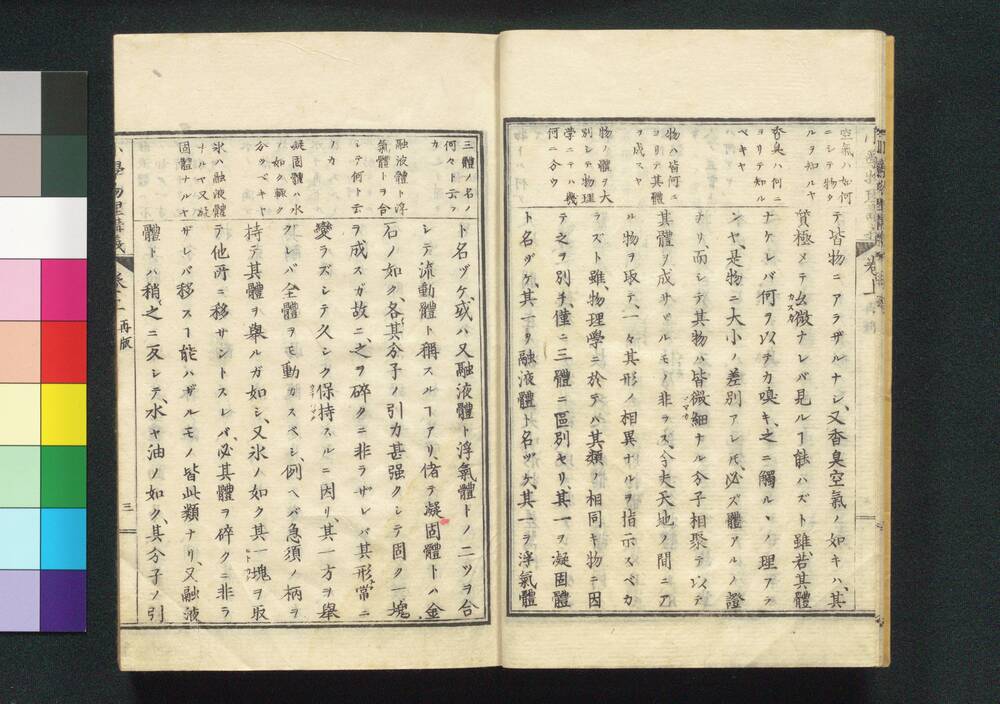 空氣ハ如何
ニシテ物タ
ルヲ知ルヤ
香臭ハ何ニ
ヨリテ知ル
ベキヤ
物ハ皆何ニ
ヨリテ其體
ヲ成スヤ
物ノ體ヲ大
別シテ物理
學ニテハ幾
何ニ分ツ
テ皆物ニアラザルナシ、又香臭空氣ノ如キハ、其
質極メテ幺微ナレバ見ルヿ能ハズト雖、若其體
カスカ
ナケレバ何ヲ以テカ嗅キ、之ニ觸ルヽノ理アラ
ンヤ、是物ニ大小ノ差別アレ𪜈、必ズ體アルノ證
ナリ、而シテ其物ハ皆微細ナル分子相聚テ以テ
其體ヲ成サヾルモノ非ラズ、今夫天地ノ間ニア
ル物ヲ取テ、一々其形ノ相異ナルヲ指示スベカ
ラズト雖、物理學ニ於テハ其類ノ相同キ物ニ因
テ之ヲ別チ、僅ニ三體ニ區別セリ、其一ヲ凝固體
ト名ヅケ、其一ヲ融液體ト名ヅケ、其一ヲ浮氣體
三體ノ名ノ
何々ト云フ
カ
融液體ト浮
氣體トヲ合
シテ何ト云
フカ
凝固體ハ水
ノ如ク輙ク
分ツベキヤ
氷ハ融液體
ナルヤ又凝
固體ナルヤ
ト名ヅケ、或ハ又融液體ト浮氣體トノ二ツヲ合
シテ流動體ト稱スルヿアリ、偖テ凝固體トハ金
石ノ如ク、各其分子ノ引力甚强クシテ固ク一塊
ヲ成スガ故ニ、之ヲ碎クニ非ラザレバ其形常ニ
變ラズシテ久シク保持スルニ因リ、其一方ヲ舉
クレバ全體ヲモ動カスベシ、例ヘバ急須ノ柄ヲ
持テ其體ヲ舉ルガ如シ、又氷ノ如ク其一塊ヲ取
テ他所ニ移サントスレバ、必其體ヲ碎クニ非ラ
ザレバ移スヿ能ハザルモノ皆此類ナリ、又融液
體トハ稍、之ニ反シテ、水ヤ油ノ如ク、其分子ノ引
再版
三